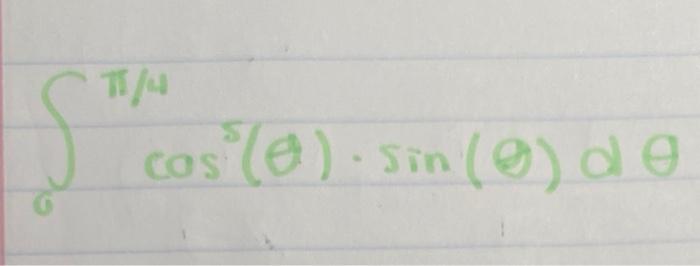 ∫₀^(π/4) cos⁵(θ) · sin(θ) dθ